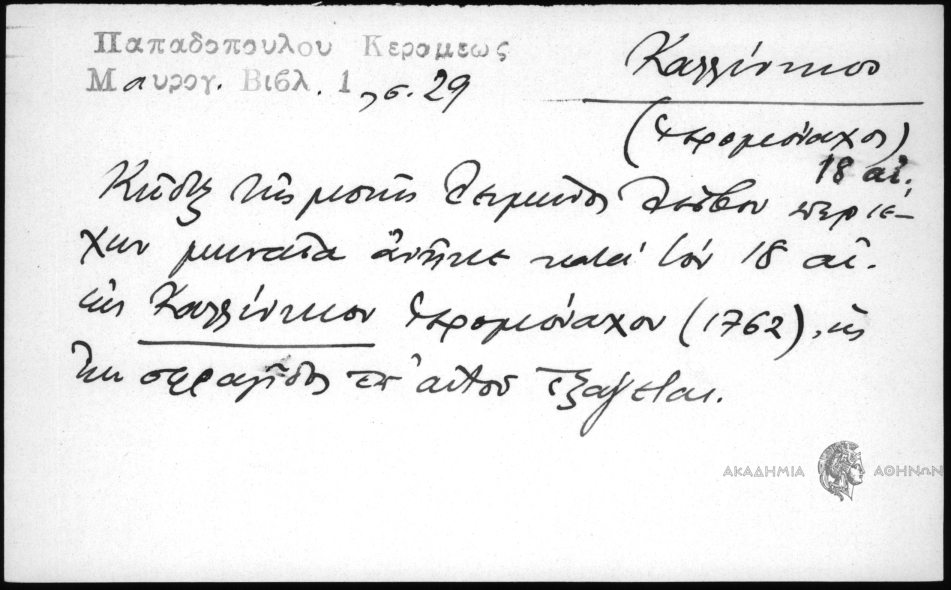 Παπαδοπουλου Κεραμεως
Μαυρογ. Βιβλ. 1, σ. 29
Καλλίνικος
(ἱερομόναχος)
18 αἰ.
Κῶδιξ τῆς μονῆς Λειμῶνος Λέσβου περιέ-
χων μηναῖα ἀνῆκε κατά τόν 18 αἰ.
εἰς Καλλίνικον ἱερομόναχον (1762), ὡς
ἐκ σφραγῖδος ἐπ' αὐτοῦ ἐξάγεται.
ΑΚΑΔΗΜΙΑ ΑΘΗΝΩΝ